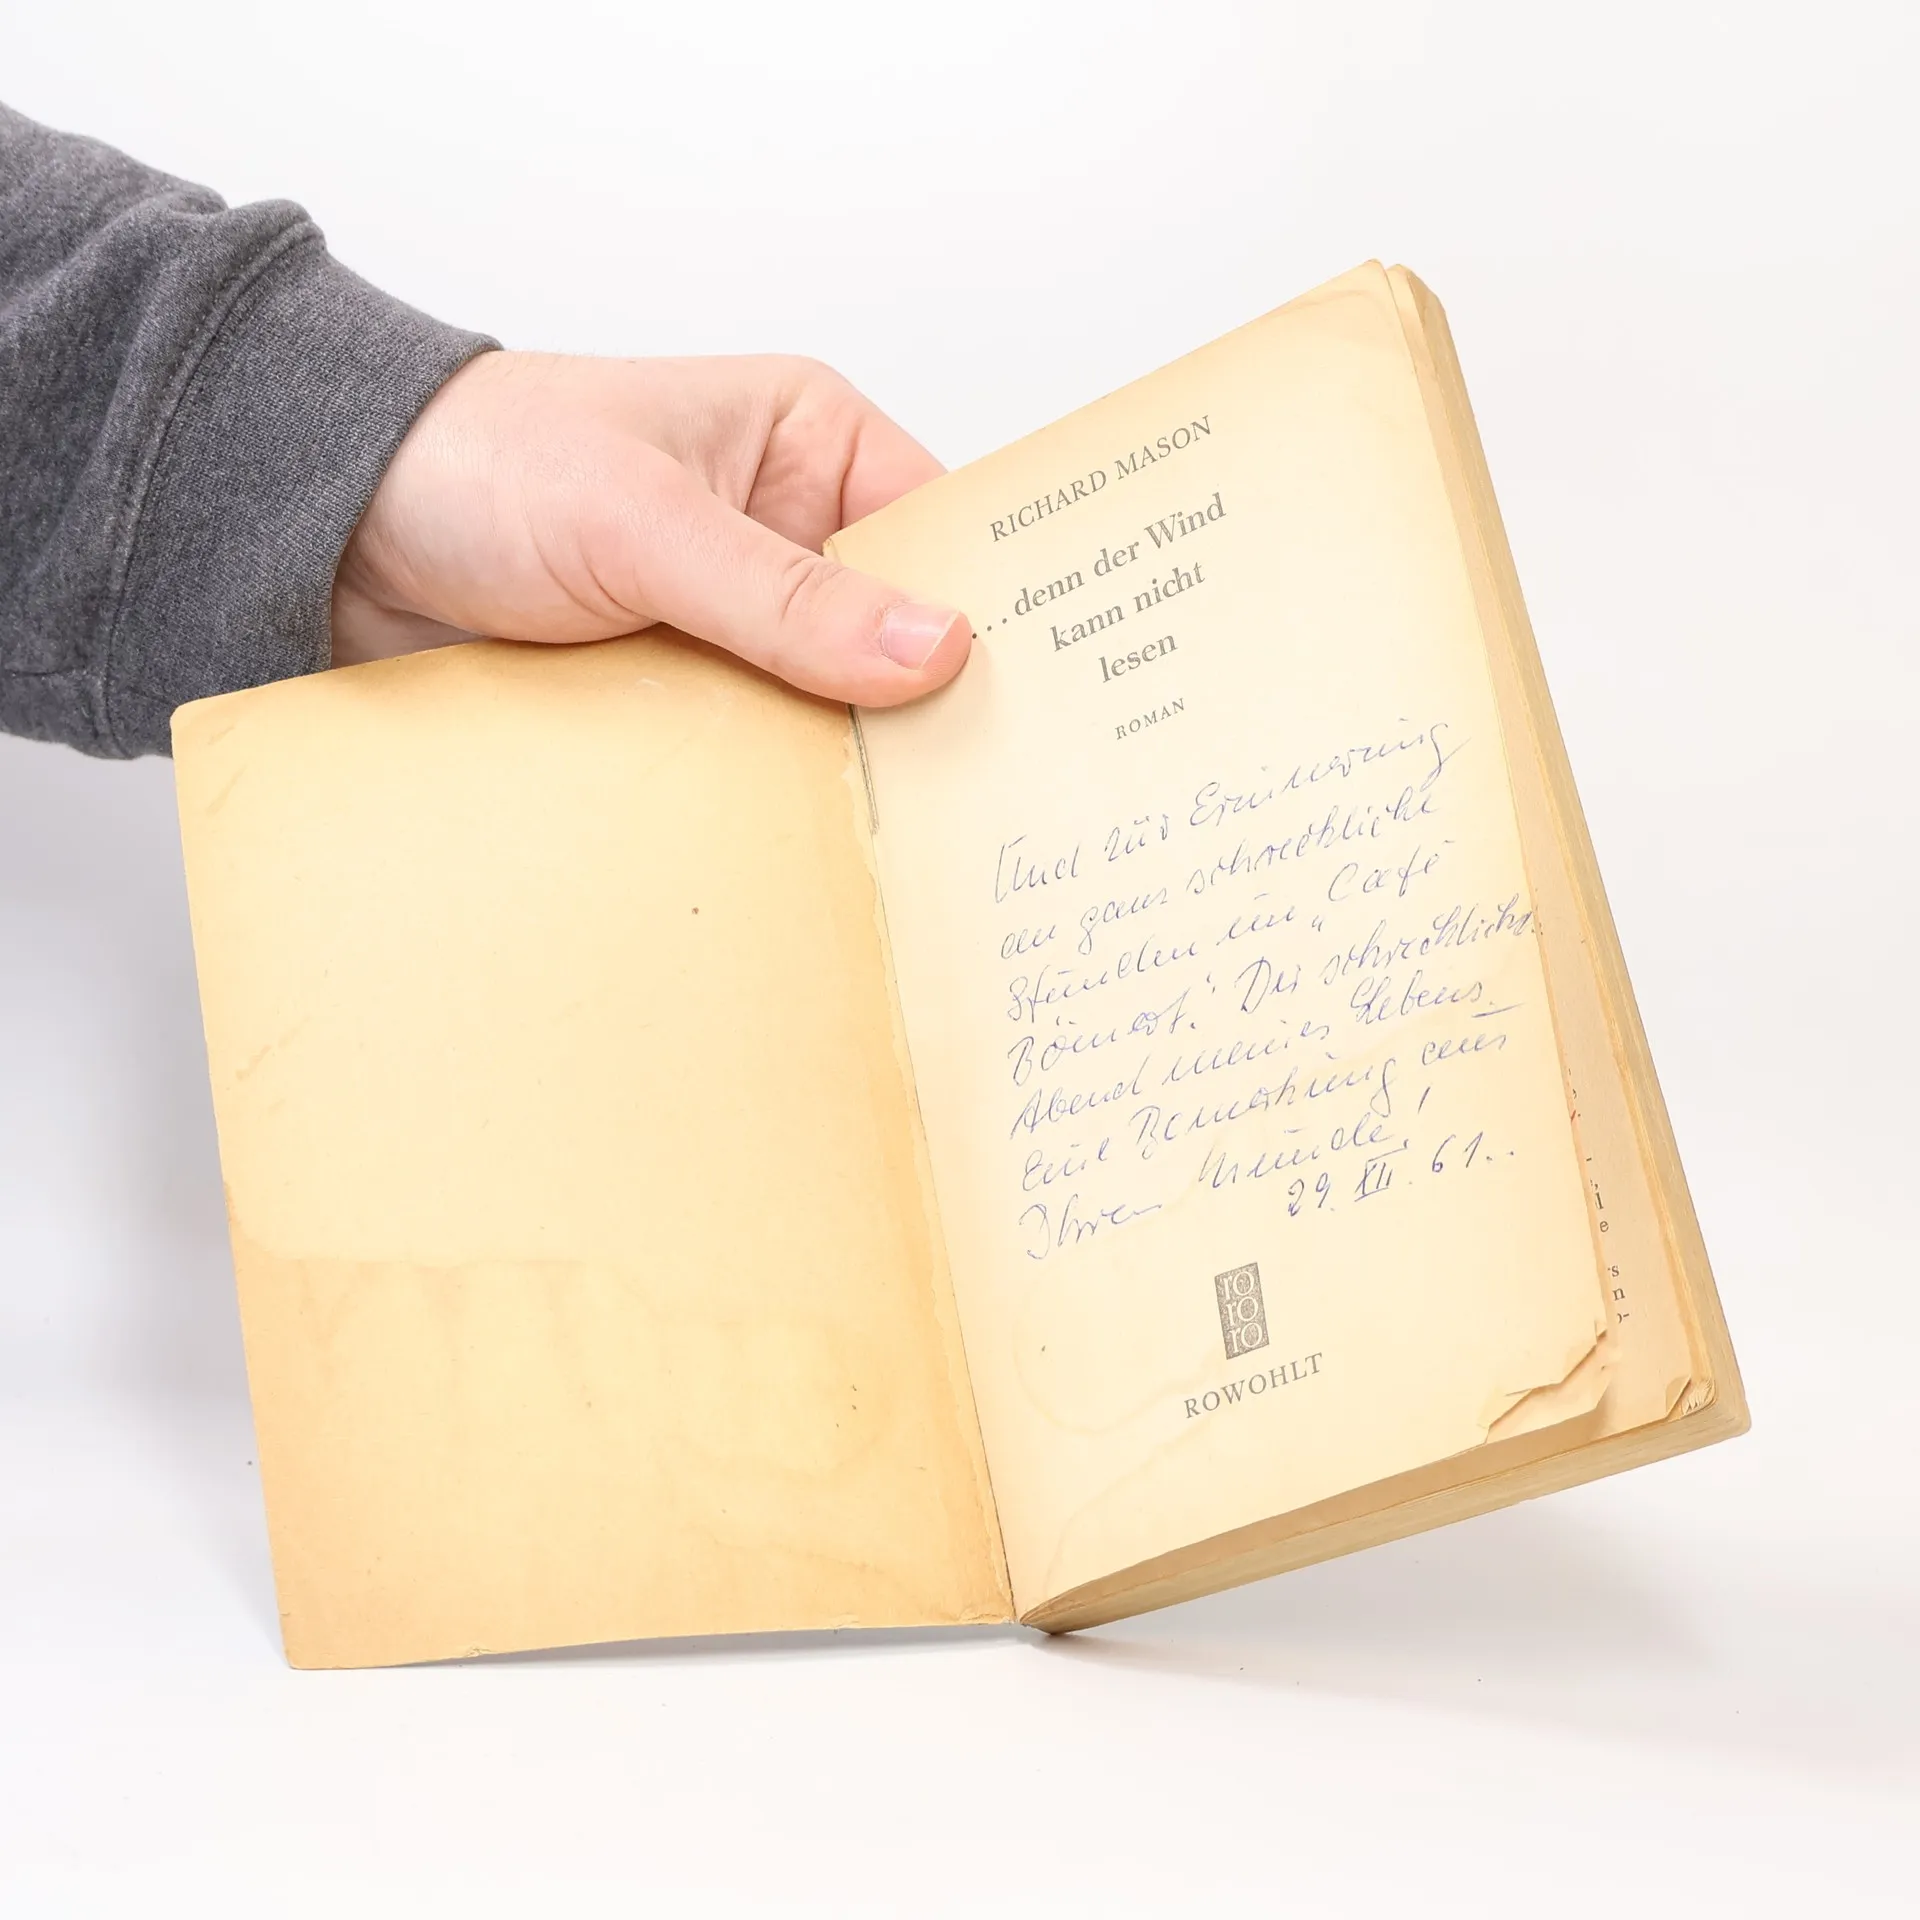 RICHARD MASON
... denn der Wind
kann nicht
lesen
ROMAN
Und zur Erinnerung
an ganz schreckliche
Stunden im „Café
Der schrecklichste
Abend meines Lebens.
Eine Bemerkung aus
Ihrem Munde!
29. XII. 61..
ro
ro
ro
ROWOHLT